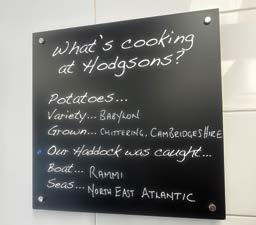 What's cooking
at Hodgsons?
Potatoes...
Variety... BABYLON
Grown... CHITTERING, CAMBRIDGESHIRE
Our Haddock was caught...
Boat... RAMMI
Seas... NORTH EAST ATLANTIC